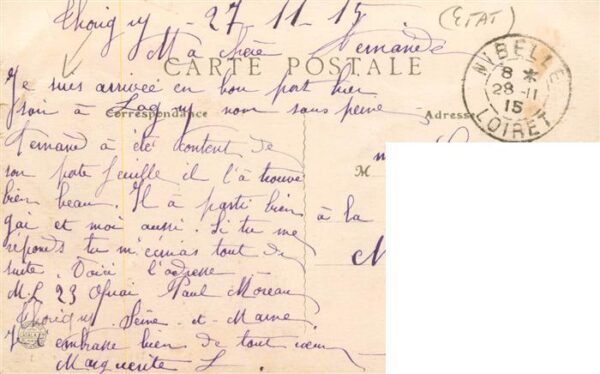 Thorigny - 27-11-15
(ETAT)
Ma chère Fernande
CARTE POSTALE
NIBELLE
8 *
28-11
15
LOIRET
Je suis arrivée en bon port hier
soir à Lagny non sans peine
Correspondance
Adresse
Fernand à été content de
son porte feuille il l'à trouvé
M
bien beau. Il à parti bien
à la
gai et moi aussi. Si tu me
réponds tu m'écriras tout de
M
suite. Voici l'adresse
M. L 23 Quai Paul Moreau
Thorigny Seine-et-Marne
Je t'embrasse bien de tout cœur
Marguerite L.